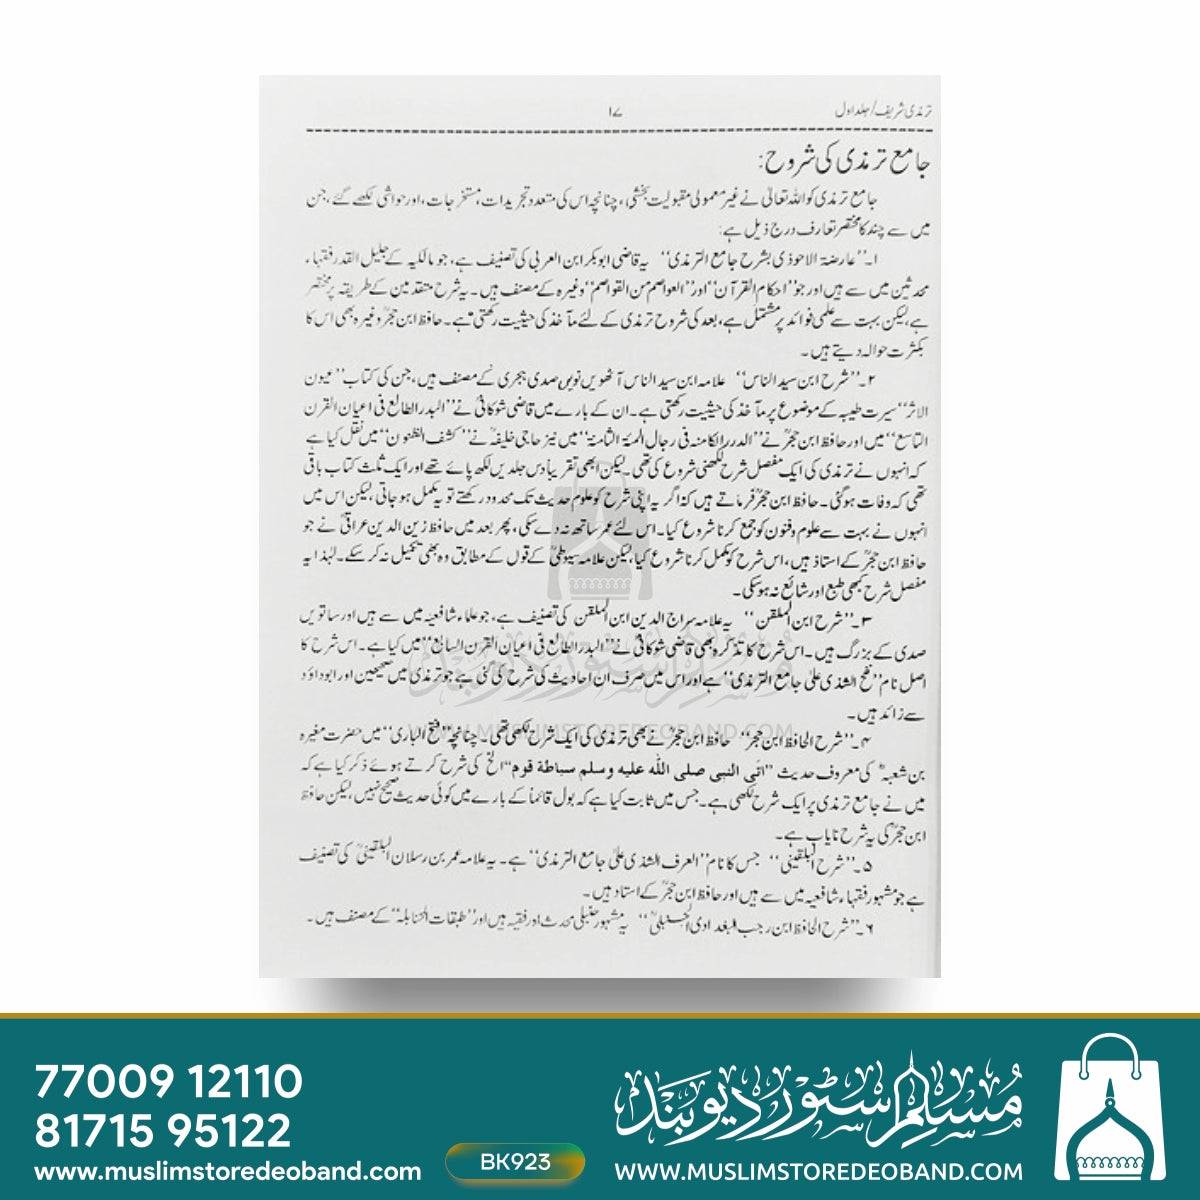 ترمذی شریف/جلد اول
۱۷
جامع ترمذی کی شروح:
جامع ترمذی کو اللہ تعالیٰ نے غیر معمولی مقبولیت بخشی، چنانچہ اس کی متعدد تجریدات، مستخرجات، اور حواشی لکھے گئے، جن
میں سے چند کا مختصر تعارف درج ذیل ہے:
۱۔’’عارضۃ الاحوذی بشرح جامع الترمذی‘‘ یہ قاضی ابوبکر ابن العربی کی تصنیف ہے، جو مالکیہ کے جلیل القدر فقہاء،
محدثین میں سے ہیں اور جو’’احکام القرآن‘‘ اور’’العواصم من القواصم‘‘ وغیرہ کے مصنف ہیں۔ یہ شرح متقدمین کے طریقہ پر مختصر
ہے، لیکن بہت سے علمی فوائد پر مشتمل ہے، بعد کی شروح ترمذی کے لئے مآخذ کی حیثیت رکھتی ہے۔ حافظ ابن حجرؒ وغیرہ بھی اس کا
بکثرت حوالہ دیتے ہیں۔
۲۔’’شرح ابن سید الناس‘‘ علامہ ابن سید الناس آٹھویں نویں صدی ہجری کے مصنف ہیں، جن کی کتاب ’’عیون
الاثر‘‘ سیرت طیبہ کے موضوع پر مآخذ کی حیثیت رکھتی ہے۔ ان کے بارے میں قاضی شوکانیؒ نے ’’البدر الطالع فی اعیان القرن
التاسع‘‘ میں اور حافظ ابن حجرؒ نے ’’الدرر الکامنہ فی رجال المئۃ الثامنۃ‘‘ میں نیز حاجی خلیفہؒ نے ’’کشف الظنون‘‘ میں نقل کیا ہے
کہ انہوں نے ترمذی کی ایک مفصل شرح لکھنی شروع کی تھی۔ لیکن ابھی تقریباً دس جلدیں لکھ پائے تھے اور ایک ثلث کتاب باقی
تھی کہ وفات ہوگئی۔ حافظ ابن حجرؒ فرماتے ہیں کہ اگر یہ اپنی شرح کو علوم حدیث تک محدود رکھتے تو یہ مکمل ہو جاتی، لیکن اس میں
انہوں نے بہت سے علوم و فنون کو جمع کرنا شروع کیا۔ اس لئے عمر ساتھ نہ دے سکی، پھر بعد میں حافظ زین الدین عراقیؒ نے جو
حافظ ابن حجرؒ کے استاذ ہیں، اس شرح کو مکمل کرنا شروع کیا، لیکن علامہ سیوطیؒ کے قول کے مطابق وہ بھی تکمیل نہ کر سکے۔ لہٰذا یہ
مفصل شرح کبھی طبع اور شائع نہ ہو سکی۔
۳۔’’شرح ابن الملقن‘‘ یہ علامہ سراج الدین ابن الملقن کی تصنیف ہے، جو علماء شافعیہ میں سے ہیں اور ساتویں
صدی کے بزرگ ہیں۔ اس شرح کا تذکرہ بھی قاضی شوکانیؒ نے ’’البدر الطالع فی اعیان القرن السابع‘‘ میں کیا ہے۔ اس شرح کا
اصل نام ’’نفح الشذی علی جامع الترمذی‘‘ ہے اور اس میں صرف ان احادیث کی شرح کی گئی ہے جو ترمذی میں صحیحین اور ابوداؤد
سے زائد ہیں۔
۴۔’’شرح الحافظ ابن حجر‘‘ حافظ ابن حجرؒ نے بھی ترمذی کی ایک شرح لکھی تھی۔ چنانچہ ’’فتح الباری‘‘ میں حضرت مغیرہ
بن شعبہؓ کی معروف حدیث ’’اتی النبی صلی الله علیه وسلم سباطة قوم‘‘الخ کی شرح کرتے ہوئے ذکر کیا ہے کہ
میں نے جامع ترمذی پر ایک شرح لکھی ہے۔ جس میں ثابت کیا ہے کہ بول قائماً کے بارے میں کوئی حدیث صحیح نہیں، لیکن حافظ
ابن حجرؒ کی یہ شرح نایاب ہے۔
۵۔’’شرح البلقینی‘‘ جس کا نام ’’العرف الشذی علی جامع الترمذی‘‘ ہے۔ یہ علامہ عمر بن رسلان البلقینیؒ کی تصنیف
ہے جو مشہور فقہاء شافعیہ میں سے ہیں اور حافظ ابن حجرؒ کے استاد ہیں۔
۶۔’’شرح الحافظ ابن رجب البغدادی الحنبلیؒ‘‘ یہ مشہور حنبلی محدث اور فقیہ ہیں اور ’’طبقات الحنابلہ‘‘ کے مصنف ہیں۔
مسلم سٹور دیوبند
WWW.MUSLIMSTOREDEOBAND.COM
77009 12110
81715 95122
www.muslimstoredeoband.com
BK923
مسلم سٹور دیوبند
WWW.MUSLIMSTOREDEOBAND.COM